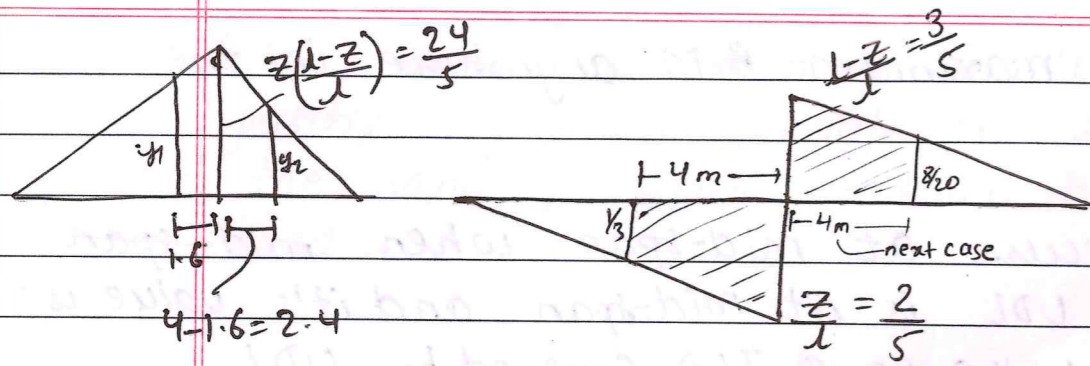 z(l-z/l) = 24/5
y1
y2
1.6
4-1.6=2.4
l-z/l = 3/5
4m
1/3
8/20
4m
next case
z/l = 2/5